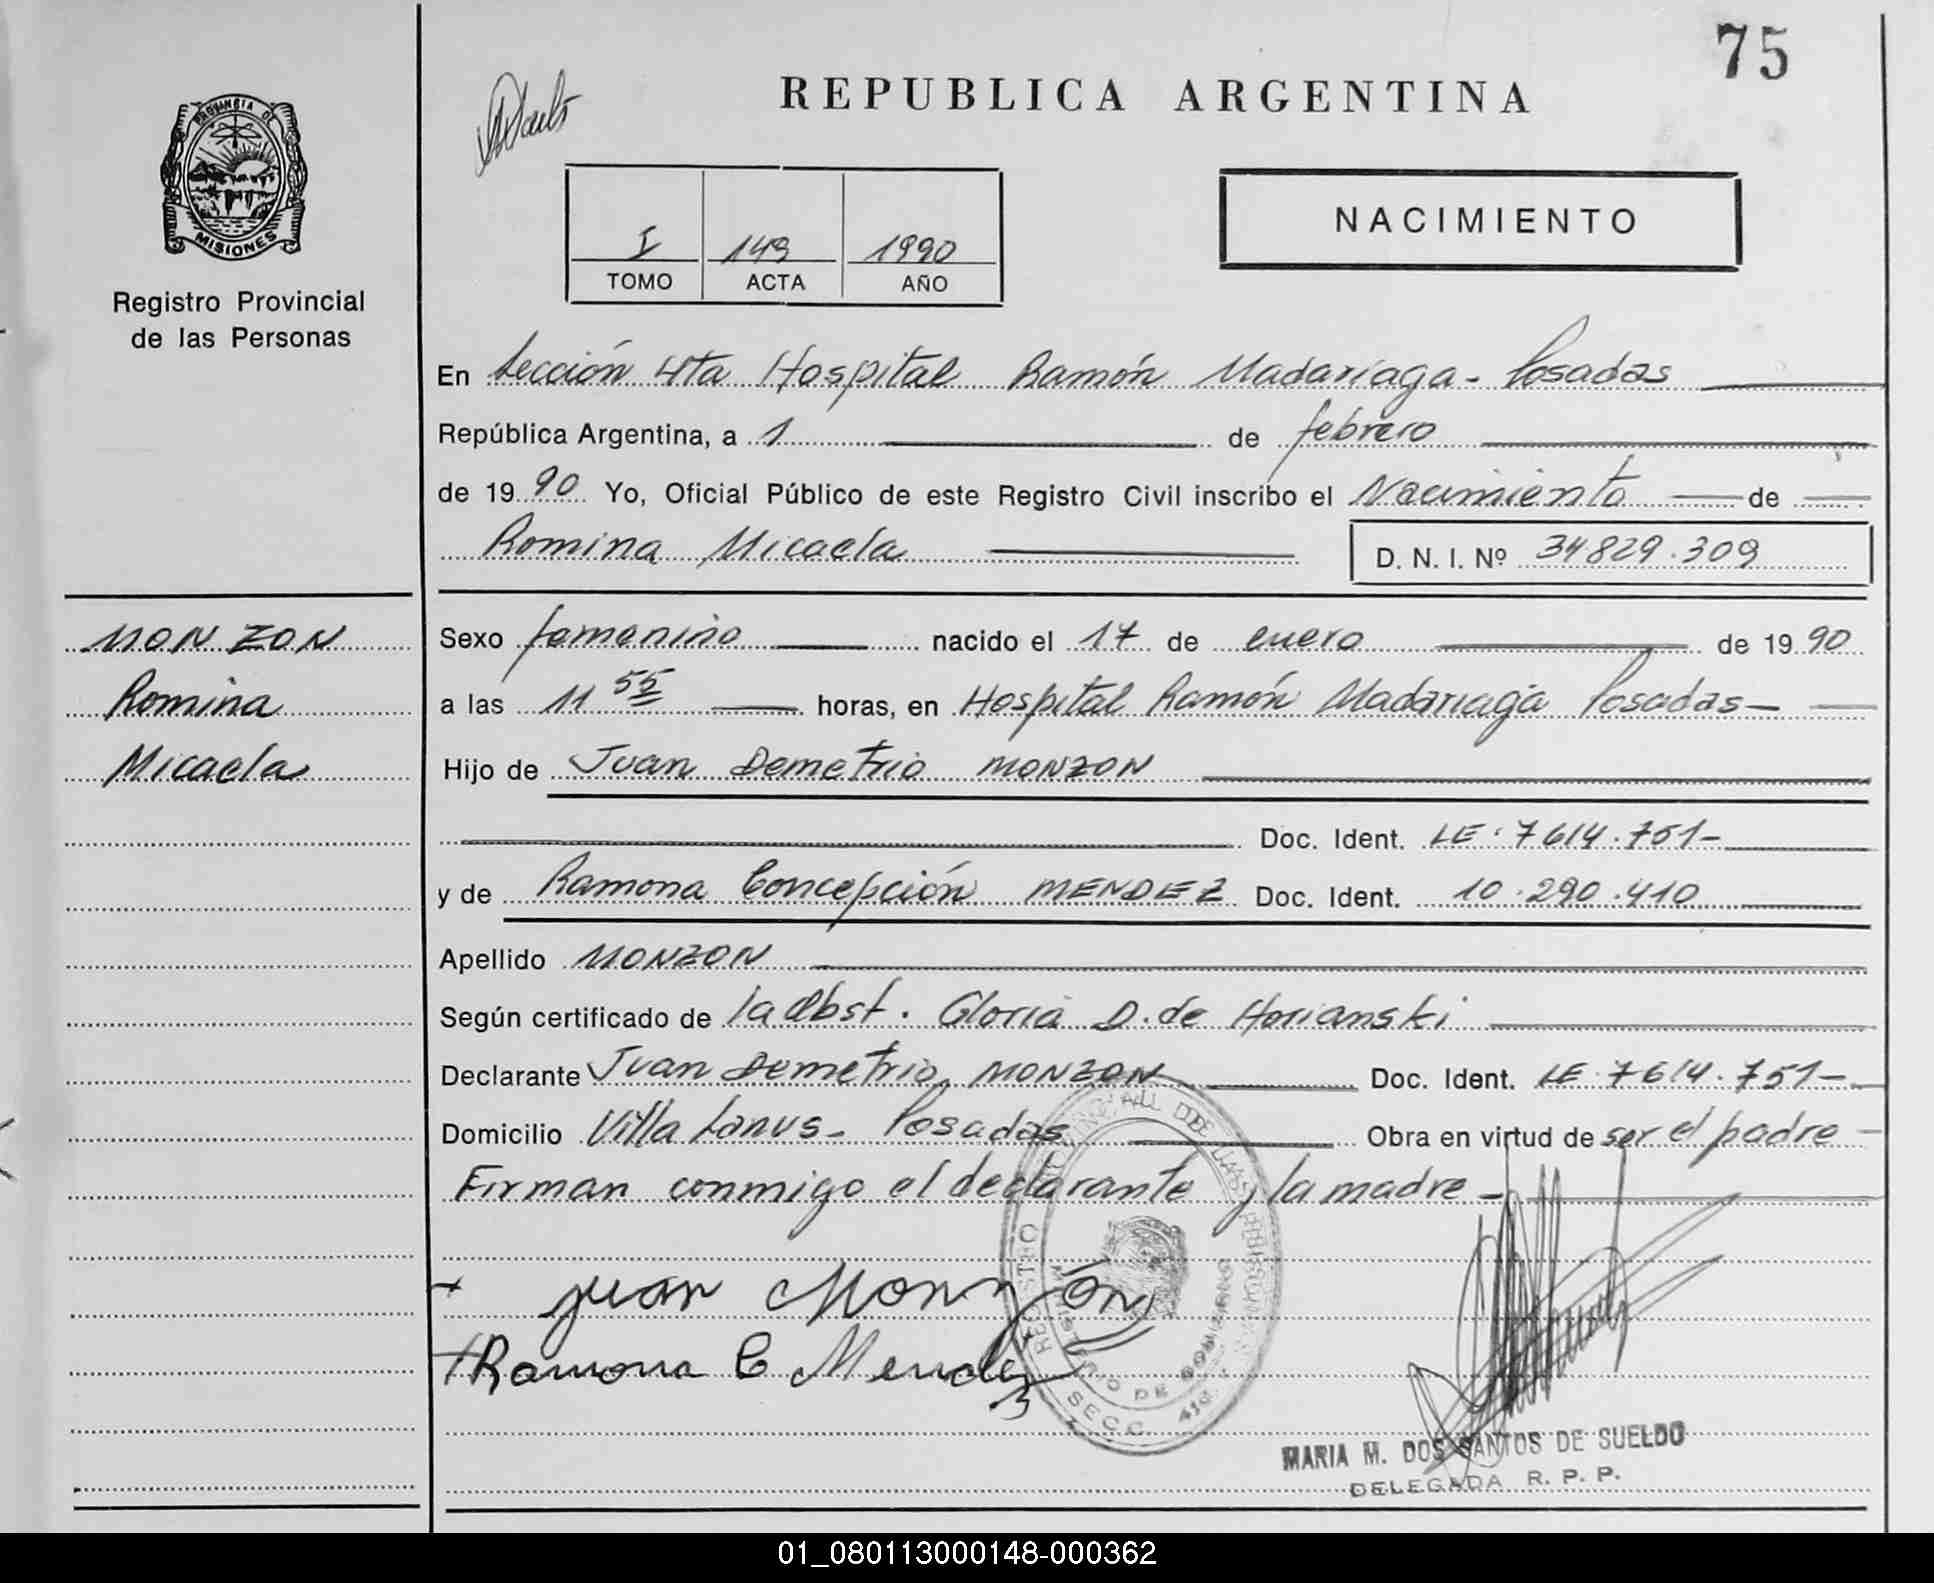 75
REPUBLICA ARGENTINA
PROVINCIA DE
MISIONES
Registro Provincial
de las Personas
I 149 1990
TOMO ACTA AÑO
NACIMIENTO
En Sección 4ta Hospital Ramón Madariaga - Posadas
República Argentina, a 1 de febrero
de 1990 Yo, Oficial Público de este Registro Civil inscribo el Nacimiento de
Romina Micaela
D. N. I. Nº 34829.309
MONZON
Romina
Micaela
Sexo femenino nacido el 17 de enero de 1990
a las 11 55 horas, en Hospital Ramón Madariaga Posadas-
Hijo de Juan Demetrio MONZON
Doc. Ident. LE. 7614.751-
y de Ramona Concepción MENDEZ Doc. Ident. 10.290.410
Apellido MONZON
Según certificado de la Obst. Gloria D. de Horianski
Declarante Juan Demetrio MONZON Doc. Ident. LE 7614.751-
Domicilio Villa Lanus - Posadas Obra en virtud de ser el padre -
Firman conmigo el declarante y la madre -
+ Juan Monzón
+ Ramona C Mendez
MINISTERIO DE GOBIERNO
SECC. 4ta
MARIA M. DOS SANTOS DE SUELDO
DELEGADA R. P. P.
01_080113000148-000362